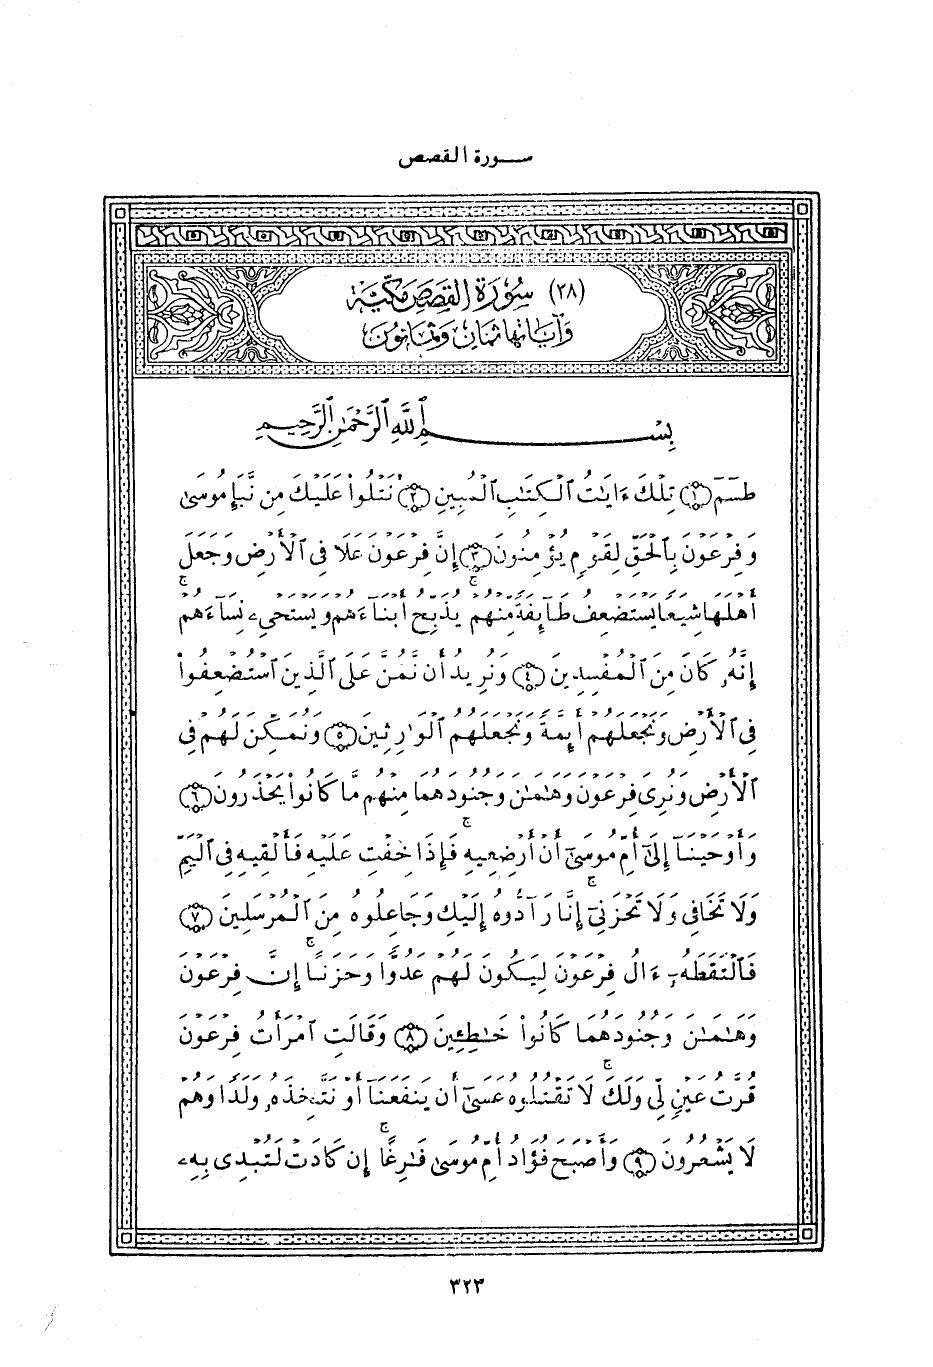 سورة القصص
(٢٨) سُورَةُ القَصَصِ مَكِّيَّة
وَآيَاتُهَا ثَمَانٍ وَثَمَانُونَ
بِسْمِ ٱللَّهِ ٱلرَّحْمَٰنِ ٱلرَّحِيمِ
طسٓمٓ (١) تِلْكَ ءَايَٰتُ ٱلْكِتَٰبِ ٱلْمُبِينِ (٢) نَتْلُوا۟ عَلَيْكَ مِن نَّبَإِ مُوسَىٰ
وَفِرْعَوْنَ بِٱلْحَقِّ لِقَوْمٍ يُؤْمِنُونَ (٣) إِنَّ فِرْعَوْنَ عَلَا فِى ٱلْأَرْضِ وَجَعَلَ
أَهْلَهَا شِيَعًا يَسْتَضْعِفُ طَآئِفَةً مِّنْهُمْ يُذَبِّحُ أَبْنَآءَهُمْ وَيَسْتَحْىِۦ نِسَآءَهُمْ ۚ
إِنَّهُۥ كَانَ مِنَ ٱلْمُفْسِدِينَ (٤) وَنُرِيدُ أَن نَّمُنَّ عَلَى ٱلَّذِينَ ٱسْتُضْعِفُوا۟
فِى ٱلْأَرْضِ وَنَجْعَلَهُمْ أَئِمَّةً وَنَجْعَلَهُمُ ٱلْوَٰرِثِينَ (٥) وَنُمَكِّنَ لَهُمْ فِى
ٱلْأَرْضِ وَنُرِىَ فِرْعَوْنَ وَهَٰمَٰنَ وَجُنُودَهُمَا مِنْهُم مَّا كَانُوا۟ يَحْذَرُونَ (٦)
وَأَوْحَيْنَآ إِلَىٰٓ أُمِّ مُوسَىٰٓ أَنْ أَرْضِعِيهِ ۖ فَإِذَا خِفْتِ عَلَيْهِ فَأَلْقِيهِ فِى ٱلْيَمِّ
وَلَا تَخَافِى وَلَا تَحْزَنِىٓ ۚ إِنَّا رَآدُّوهُ إِلَيْكِ وَجَاعِلُوهُ مِنَ ٱلْمُرْسَلِينَ (٧)
فَٱلْتَقَطَهُۥٓ ءَالُ فِرْعَوْنَ لِيَكُونَ لَهُمْ عَدُوًّا وَحَزَنًا ۗ إِنَّ فِرْعَوْنَ
وَهَٰمَٰنَ وَجُنُودَهُمَا كَانُوا۟ خَٰطِـِٔينَ (٨) وَقَالَتِ ٱمْرَأَتُ فِرْعَوْنَ
قُرَّتُ عَيْنٍ لِّى وَلَكَ ۖ لَا تَقْتُلُوهُ عَسَىٰٓ أَن يَنفَعَنَآ أَوْ نَتَّخِذَهُۥ وَلَدًا وَهُمْ
لَا يَشْعُرُونَ (٩) وَأَصْبَحَ فُؤَادُ أُمِّ مُوسَىٰ فَٰرِغًا ۖ إِن كَادَتْ لَتُبْدِى بِهِۦ
٣٢٣